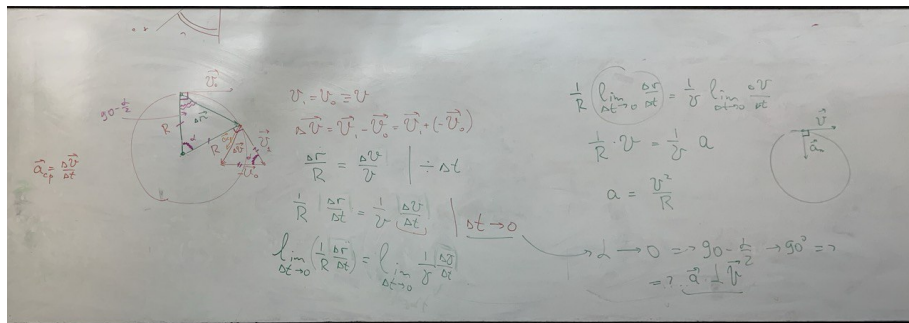 90-α/2
v⃗₀
Δr⃗
R
α
R
Δv⃗
v⃗₁
α
-v⃗₀
a⃗cp = Δv⃗/Δt
v₁ = v₀ ≡ v
Δv⃗ = v⃗₁ - v⃗₀ = v⃗₁ + (-v⃗₀)
Δr/R = Δv/v | ÷ Δt
1/R |Δr/Δt| = 1/v |Δv/Δt| | Δt → 0
lim Δt→0 (1/R Δr/Δt) = lim Δt→0 1/v Δv/Δt
1/R lim Δt→0 Δr/Δt = 1/v lim Δt→0 Δv/Δt
1/R · v = 1/v a
a = v²/R
α → 0 => 90 - α/2 → 90° =>
=> a⃗ ⊥ v⃗
v⃗
a⃗